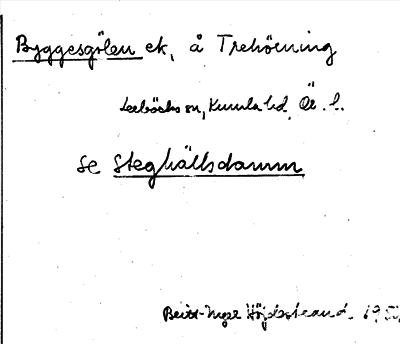 Byggesgölen ek, å Trehörning
Lerbäcks sn, Kumla hd, Ör. l.
se Steghällsdamm
Britt-Inger Höjdestrand 195